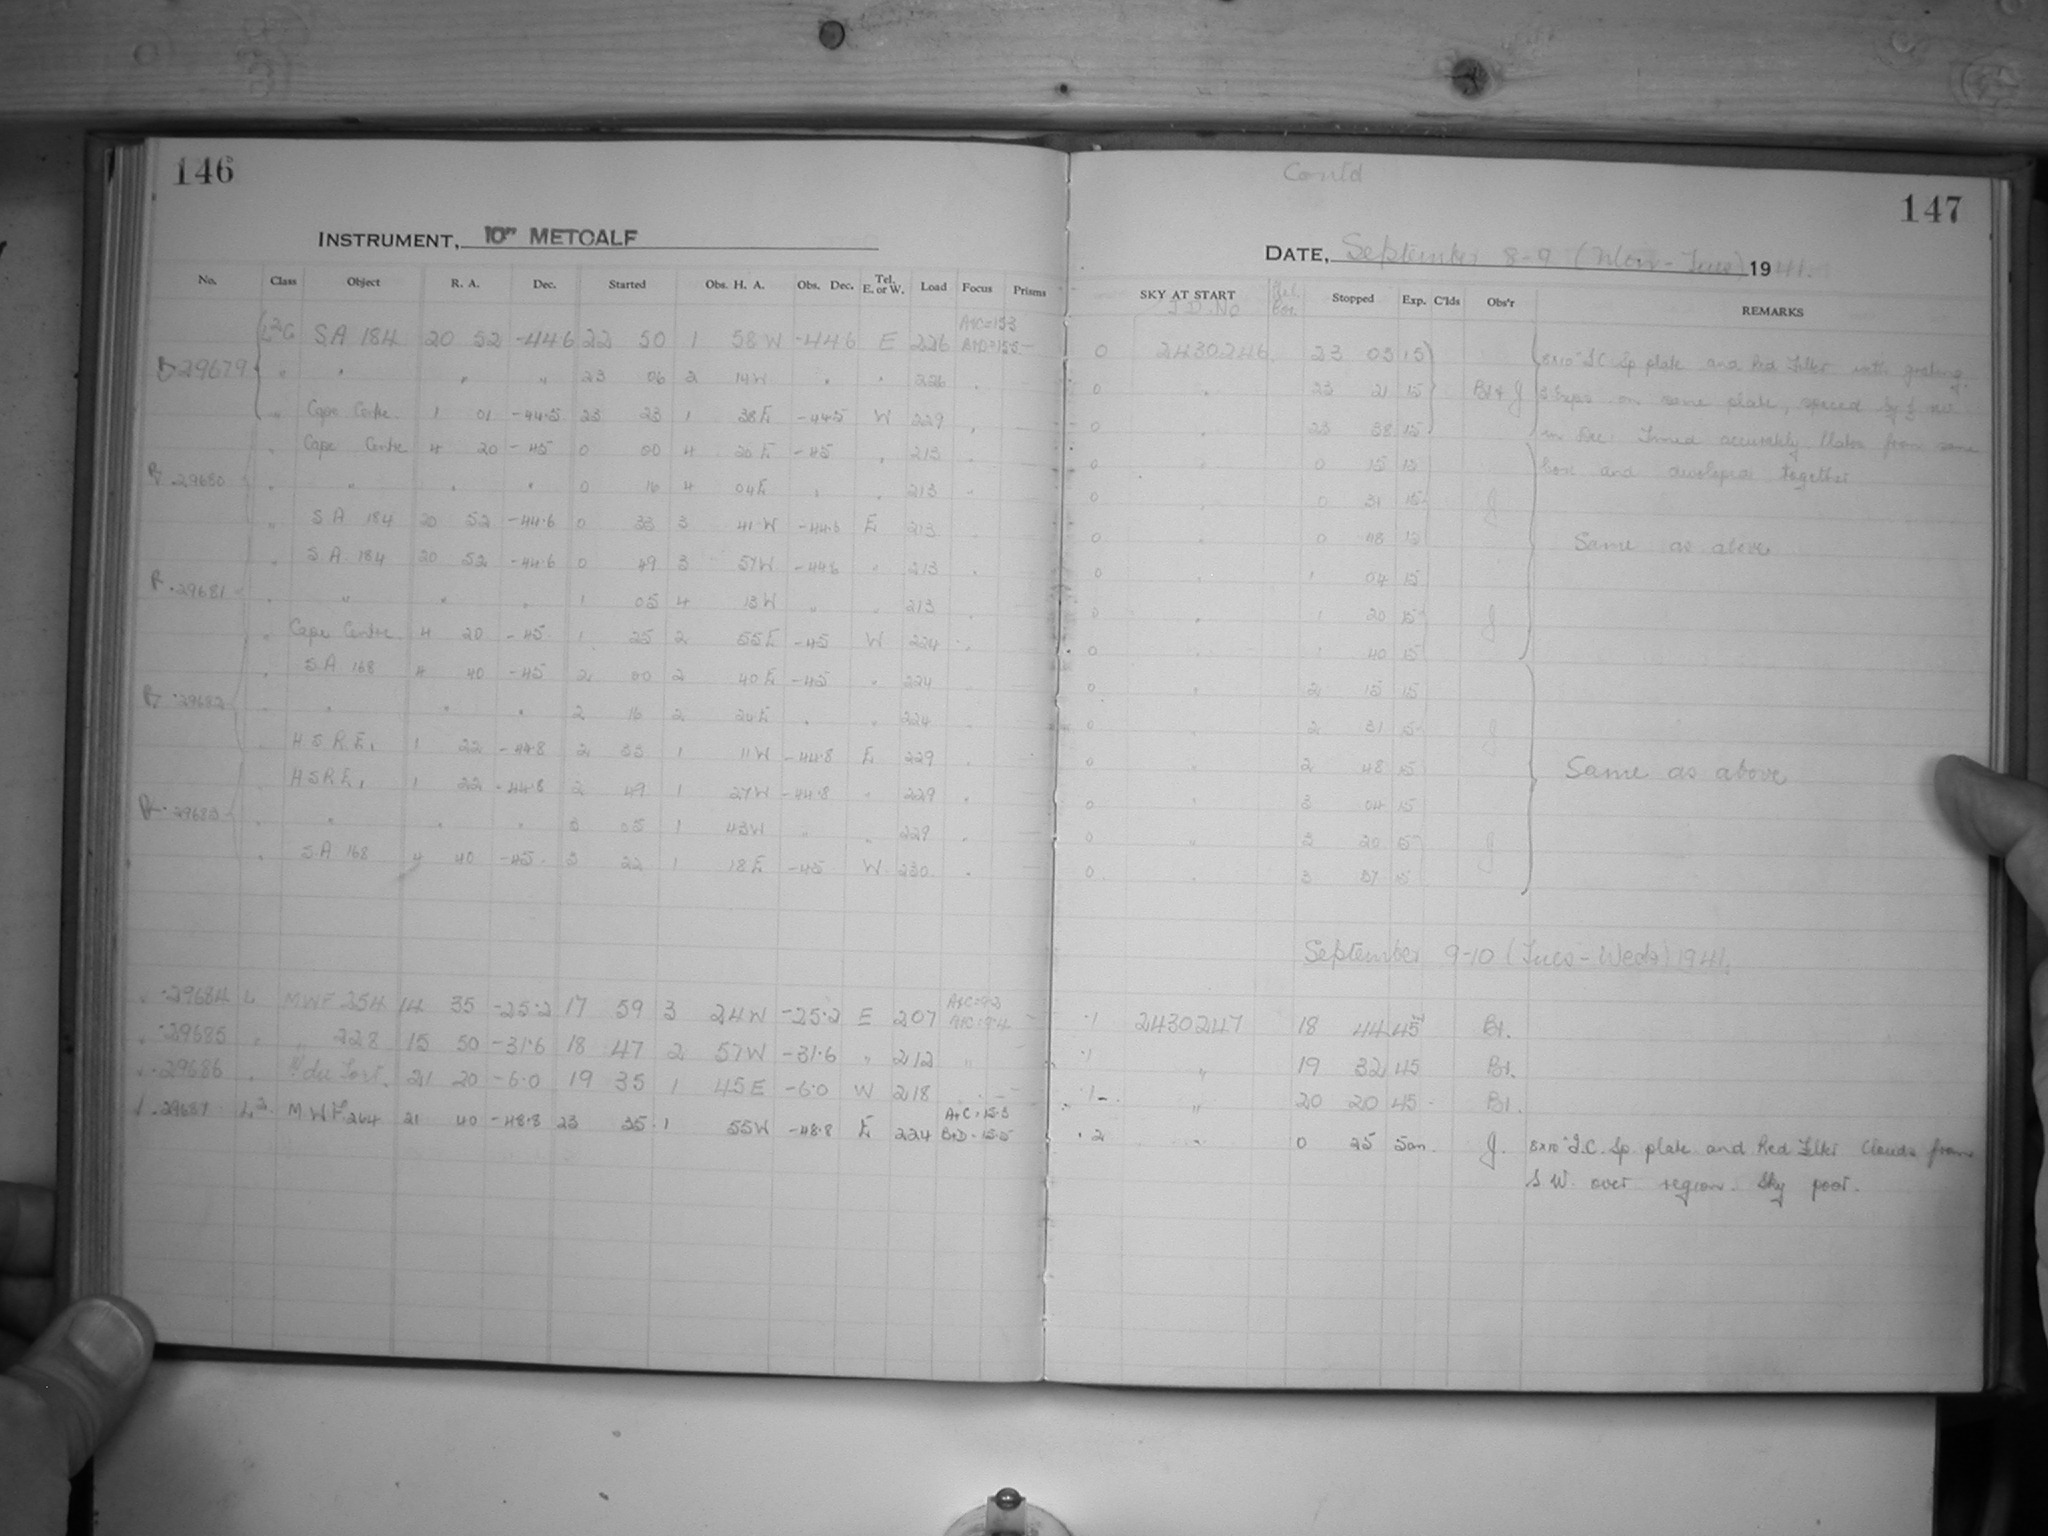 146
INSTRUMENT, 10" METCALF
No. Class Object R. A. Dec. Started Obs. H. A. Obs. Dec. Tel. E. or W. Load Focus Prisms
L2G S A 184 20 52 -44.6 22 50 1 58 W -44.6 E 226 A+C=15.3 B+D=15.5
29679 " " " " 23 06 2 14 W " " 226
" Cape Centre 1 01 -44.5 23 23 1 38 E -44.5 W 229
" Cape Centre 4 20 -45 0 00 4 20 E -45 " 213
29680 " " " " 0 16 4 04 E " " 213
" S A 184 20 52 -44.6 0 33 3 41 W -44.6 E 213
" S A 184 20 52 -44.6 0 49 3 57 W -44.6 " 213
29681 " " " " 1 05 4 13 W " " 213
" Cape Centre 4 20 -45 1 25 2 55 E -45 W 224
" S A 168 4 40 -45 2 00 2 40 E -45 " 224
29682 " " " 2 16 2 24 E " " 224
" H S R E, 1 22 -44.8 2 33 1 11 W -44.8 E 229
" H S R E, 1 22 -44.8 2 49 1 27 W -44.8 " 229
29683 " " " " 3 05 1 43 W " " 229
" S.A 168 4 40 -45 3 22 1 18 E -45 W 230
29684 L MWF 354 14 35 -25.2 17 59 3 24 W -25.2 E 207
29685 " " 228 15 50 -31.6 18 47 2 57 W -31.6 " 212 "
29686 " du Toit 21 20 -6.0 19 35 1 45 E -6.0 W 218
29687 L2 MWF 264 21 40 -48.8 23 35 1 55 W -48.8 E 224 A+C=15.3 B+D=15.5
Contd
147
DATE, September 8-9 (Mon-Tues) 1941.
SKY AT START J.D. No Stopped Exp. C'lds Obs'r REMARKS
0 2430246 23 05 15 8x10" I.C. Sp plate and Red Filter with grating
0 " 23 21 15 Bl & J 3 Exps on same plate, spaced by
0 " 23 38 15 in Dec. Timed accurately Plates from same
0 " 0 15 15 box and developed together
0 " 0 31 15 J
0 " 0 48 15 Same as above
0 " 1 04 15
0 " 1 20 15 J
0 " 1 40 15
0 " 2 15 15
0 " 2 31 15 J
0 " 2 48 15 Same as above
0 " 3 04 15
0 " 3 20 15 J
0 " 3 37 15
September 9-10 (Tues-Weds) 1941.
.1 2430247 18 44 45 Bl.
.1 " 19 32 45 Bl.
.1 " 20 20 45 Bl.
.2 " 0 25 50m J. 8x10" I.C. Sp. plate and Red Filter Clouds from
S W. over region. Sky poor.